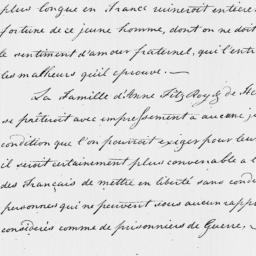 plus longue en France ruineroit entière
fortune de ce jeune homme, dont on ne doit
le sentiment d'amour fraternel, qui l'entr
les malheurs qu'il eprouve. —
La Famille d'Anne FitzRoy & de He
se prêteroit avec impressement à aucune ju
condition que l'on pourroit exiger pour leur
il seroit certainement plus convenable a l
des Français de mettre en liberté sans cond
personnes qui ne peuvent sous aucun rapp
considerés comme de prisonniers de Guerre, —